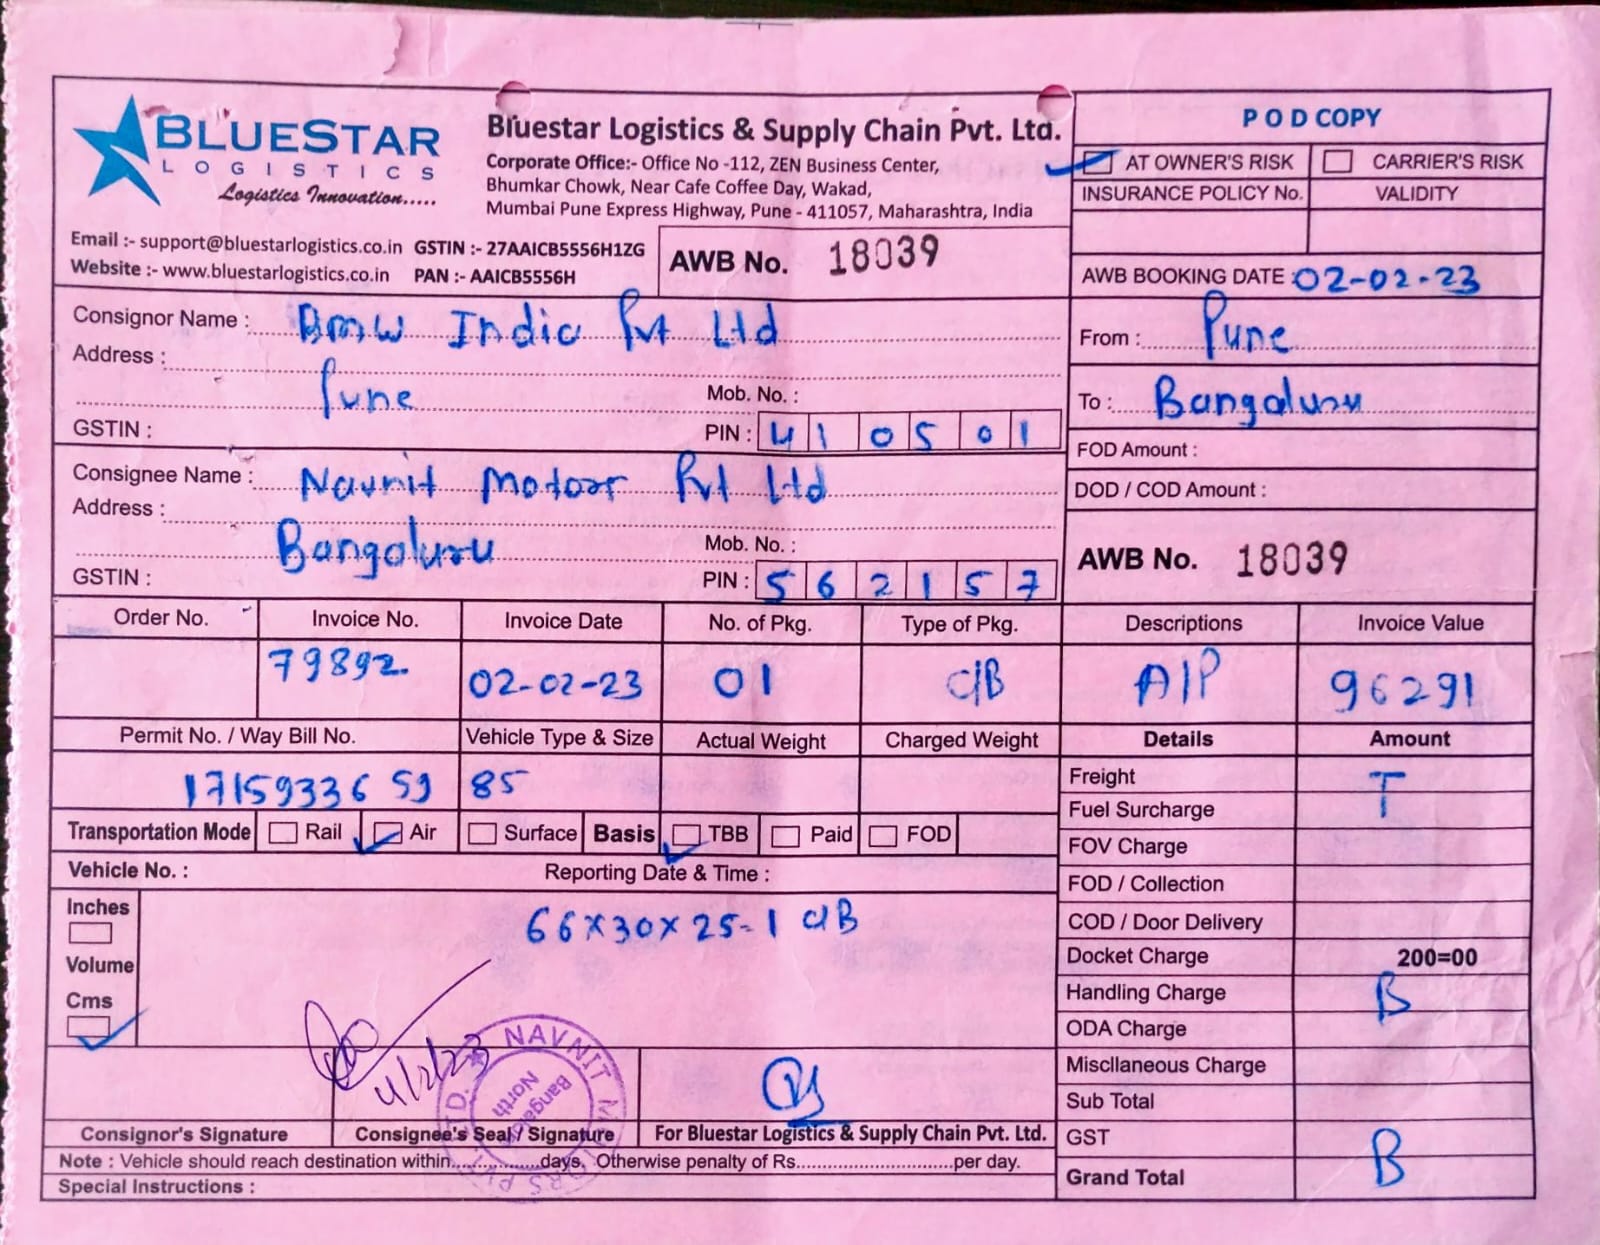 BLUESTAR
LOGISTICS
Logistics Innovation.....
Bluestar Logistics & Supply Chain Pvt. Ltd.
Corporate Office:- Office No -112, ZEN Business Center,
Bhumkar Chowk, Near Cafe Coffee Day, Wakad,
Mumbai Pune Express Highway, Pune - 411057, Maharashtra, India
Email :- support@bluestarlogistics.co.in GSTIN :- 27AAICB5556H1ZG
Website :- www.bluestarlogistics.co.in PAN :- AAICB5556H
AWB No. 18039
POD COPY
AT OWNER'S RISK CARRIER'S RISK
INSURANCE POLICY No. VALIDITY
AWB BOOKING DATE : 02-02-23
Consignor Name : BMW India Pvt Ltd
Address :
Pune
Mob. No. :
GSTIN :
PIN : 410501
From : Pune
To : Bangaluru
FOD Amount :
DOD / COD Amount :
Consignee Name : Navnit Motoar Pvt Ltd
Address :
Bangaluru
Mob. No. :
GSTIN :
PIN : 562157
AWB No. 18039
Order No. Invoice No. Invoice Date No. of Pkg. Type of Pkg. Descriptions Invoice Value
79892. 02-02-23 01 C/B A/P 96291
Permit No. / Way Bill No. Vehicle Type & Size Actual Weight Charged Weight Details Amount
1715933659 85
Freight T
Fuel Surcharge
Transportation Mode Rail Air Surface Basis TBB Paid FOD
FOV Charge
Vehicle No. : Reporting Date & Time :
FOD / Collection
Inches
Volume
Cms
66x30x25-1 C/B
COD / Door Delivery
Docket Charge 200=00
Handling Charge B
ODA Charge
Miscllaneous Charge
Sub Total
GST
Grand Total B
4/2/23
NAVNIT MOTORS PVT. LTD.
Bangalore
North
Consignor's Signature Consignee's Seal / Signature For Bluestar Logistics & Supply Chain Pvt. Ltd.
Note : Vehicle should reach destination within................days, Otherwise penalty of Rs............................per day.
Special Instructions :